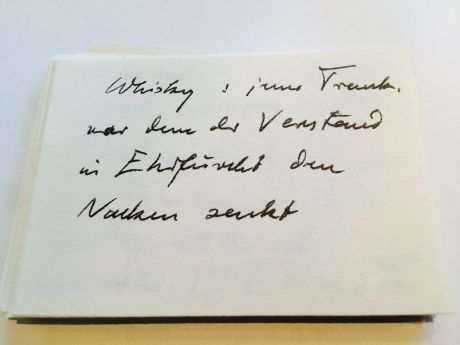 Whisky : jener Trank,
vor dem der Verstand
in Ehrfurcht den
Nacken senkt